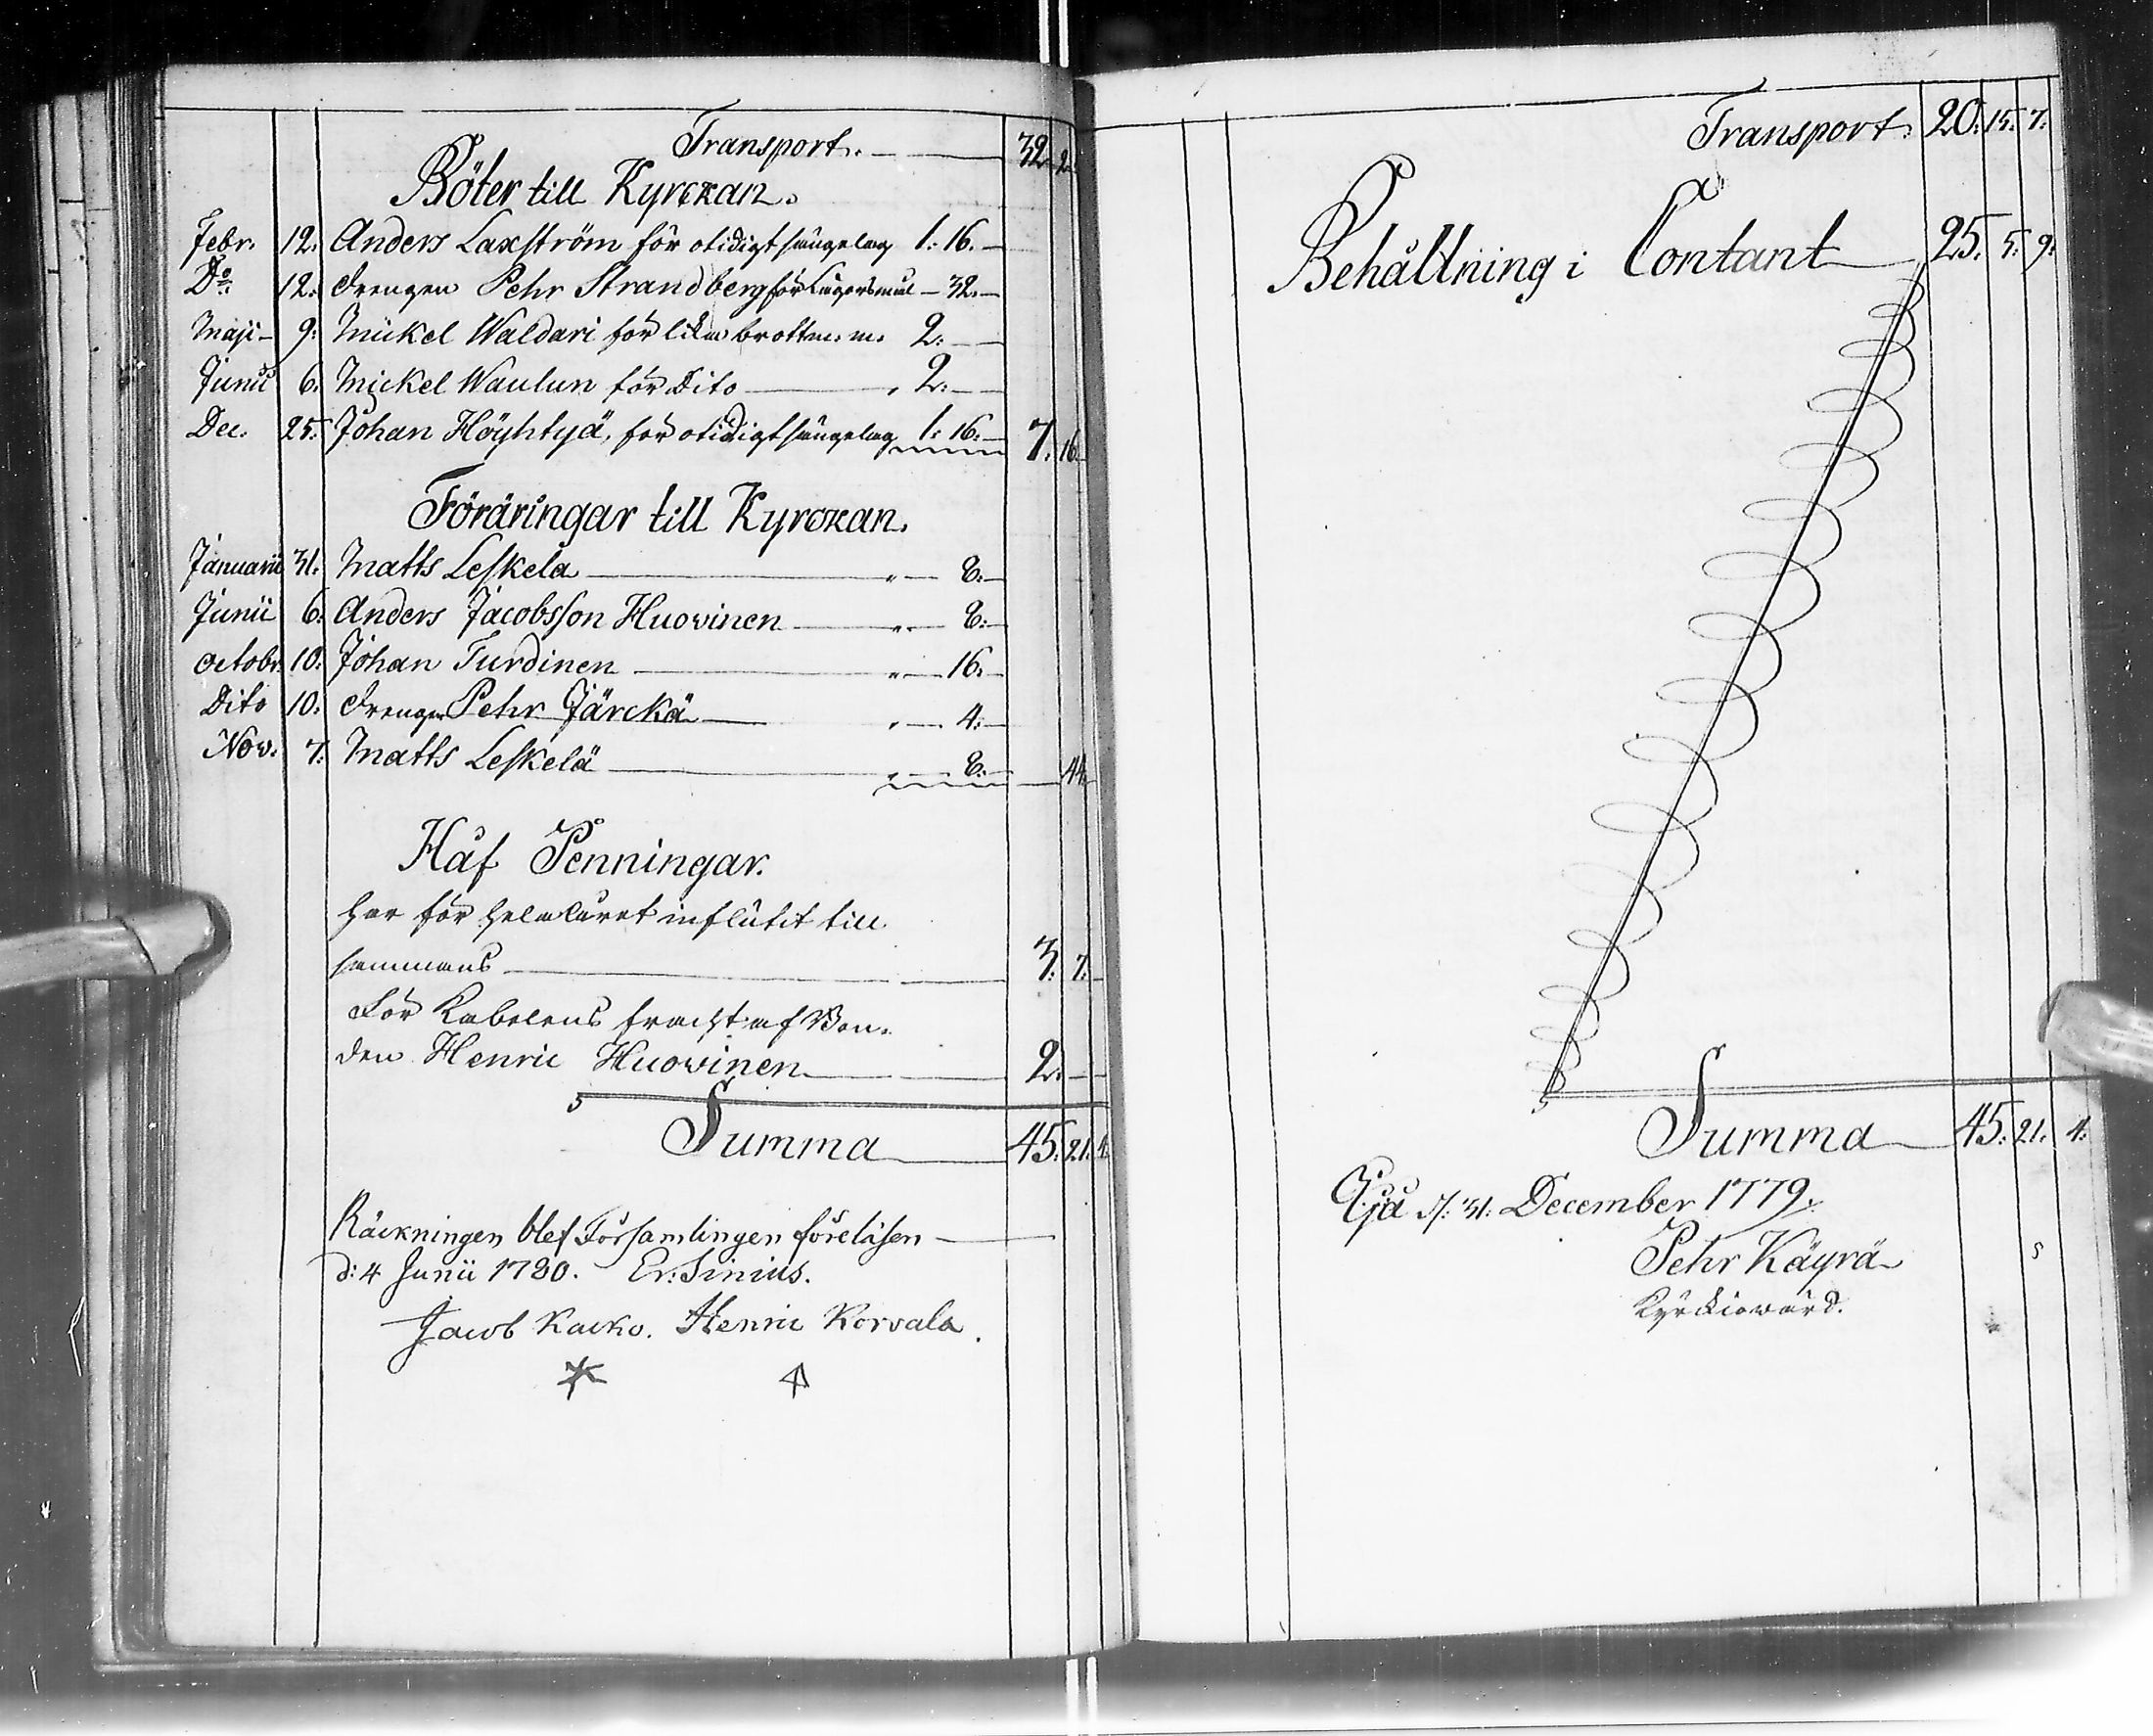 Transport. 32. 2.
Böter till Kyrckan.
Febr. 12. Anders Laxström för otidigt sängelag 1: 16.
Do 12. Drengen Pehr Strandberg för Lägersmål 32.
Maji 9: Mickel Waldari för lika brott m. m. 2:
Junii 6. Mickel Waulun för Dito 2:
Dec. 25. Johan Höyhtyä, för otidigt sängelag 1: 16: 7. 16.
Föräringar till Kyrckan.
Januarii 31. Matts Leskela 8.
Junii 6. Anders Jacobsson Huovinen 8:
Octobr. 10. Johan Turdinen 16.
Dito 10. Drengen Pehr Järckä 4:
Nov. 7. Matts Leskelä 8: 44.
Håf Penningar.
Har för hela året influtit till
sammans 3. 7.
För Kabelens fracht af Bon-
den Henric Huovinen 2.
Summa 45. 21. 4.
Räckningen blef Församlingen föreläsen
d: 4 Junii 1780. Er: Sinius.
Jacob Kacko. Henric Korvala.
Transport. 20. 15. 7.
Behållning i Contant 25. 5. 9.
Summa 45. 21. 4.
d. 31. December 1779.
Pehr Käyrä
Kyrckiowärd.